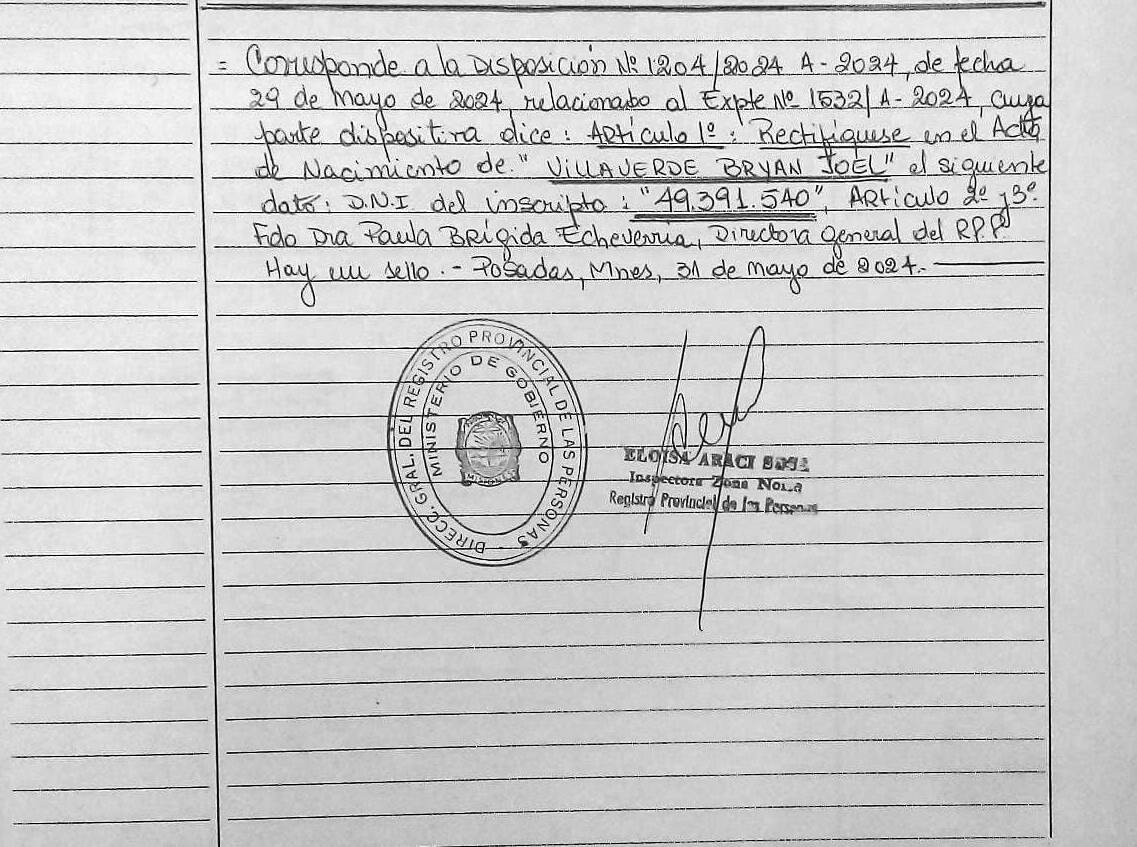 = Corresponde a la Disposición Nº 1204/2024 A-2024, de fecha
29 de Mayo de 2024, relacionado al Expte Nº 1532/A-2024, cuya
parte dispositiva dice: Artículo 1º: Rectifíquese en el Acta
de Nacimiento de "VILLAVERDE BRYAN JOEL" el siguiente
dato: D.N.I del inscripto: "49.391.540", Artículo 2º y 3º
Fdo Dra Paula Brígida Echeverria, Directora General del R.P.P.
Hay un sello.- Posadas, Mnes, 31 de mayo de 2024.-
DIRECC. GRAL. DEL REGISTRO PROVINCIAL DE LAS PERSONAS -
MINISTERIO DE GOBIERNO
MISIONES
ELOISA ARACI SOSA
Inspectora Zona
Registro Provincial de las Personas